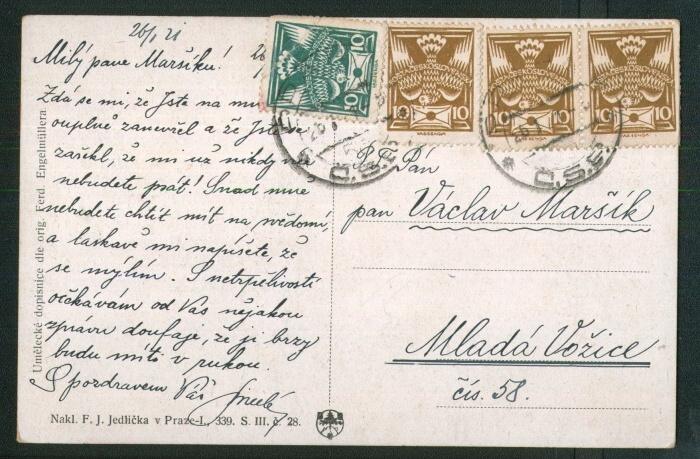 26/I 21
Milý pane Maršíku!
Zdá se mi, že Jste na mne
úplně zanevřel a že Jste se
zařekl, že mi už nikdy
nebudete psát! Snad mne
nebudete chtít mít na vědomí,
a laskavě mi napíšete, že
se mýlím. S netrpělivostí
očekávám od Vás nějakou
zprávu doufaje, že ji brzy
budu míti v rukou.
S pozdravem Váš
Umělecké dopisnice dle orig. Ferd. Engelmüllera
Nakl. F. J. Jedlička v Praze-I., 339. S. III. č. 28.
10
10
10 10
10 10
10 10
Č.S.P.
Č.S.P.
P. T. Pán
pan Václav Maršík
Mladá Vožice
čís. 58.